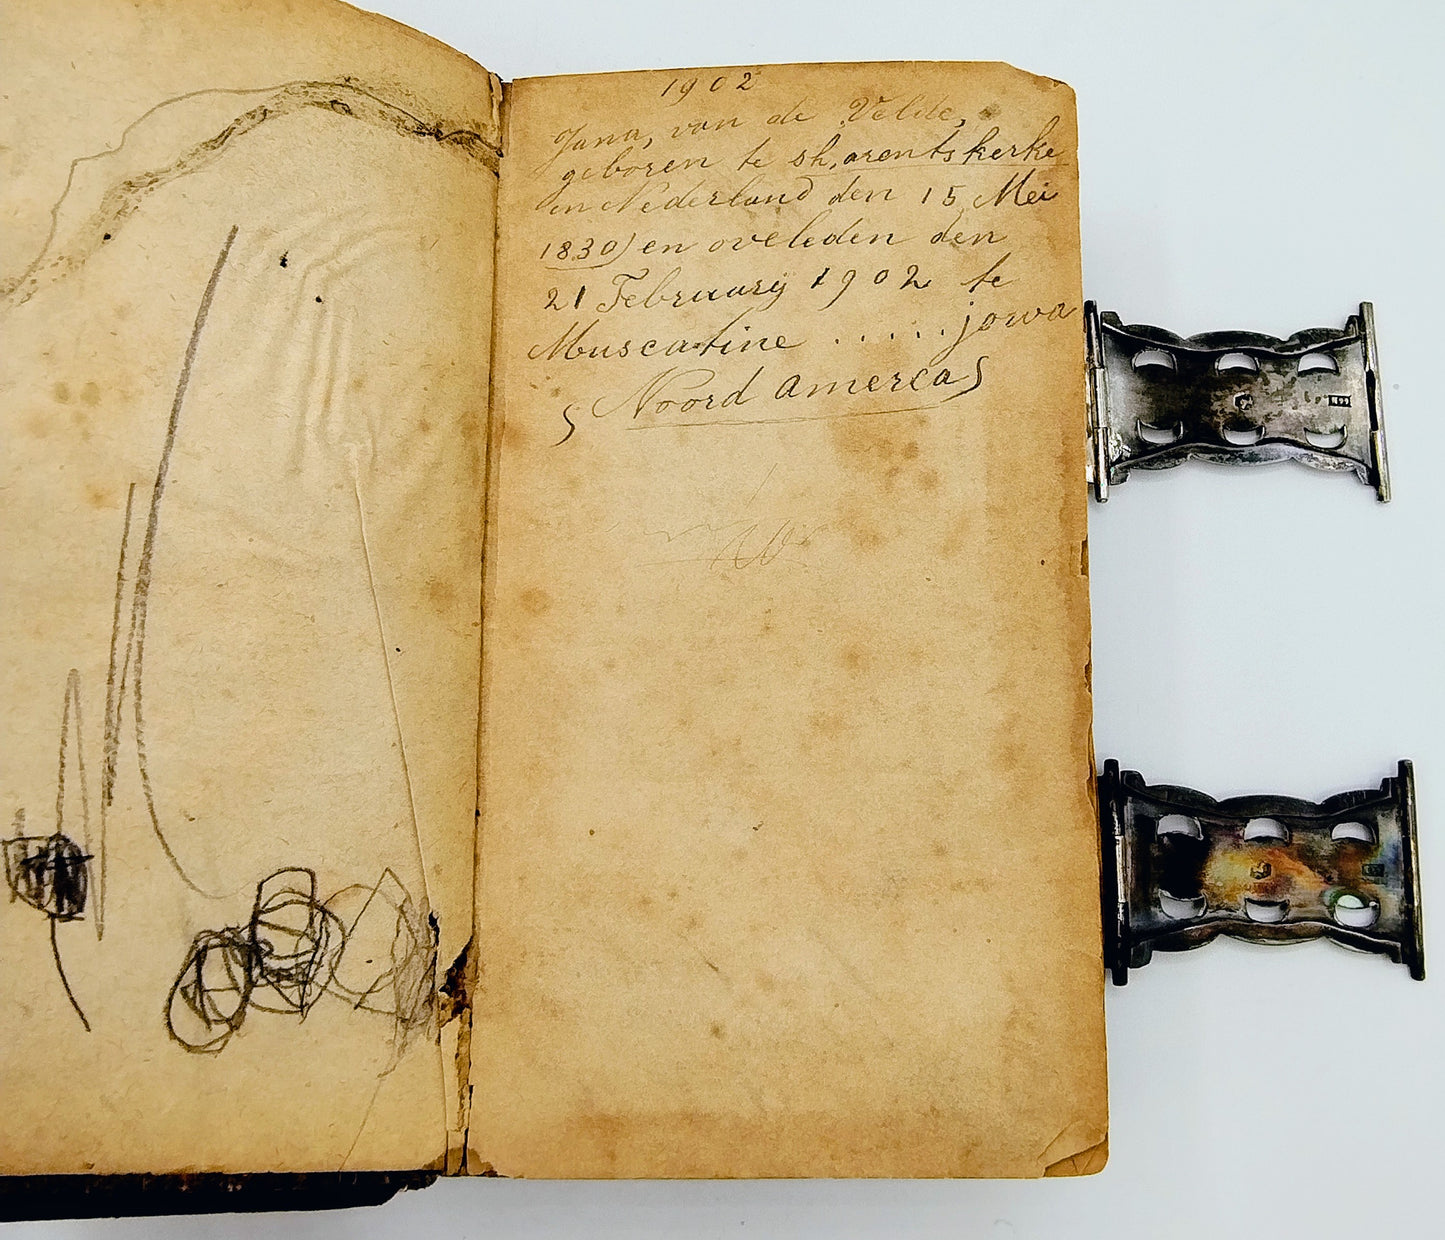 1902
Jana, van de Velde,
geboren te sh,arentskerke
in Nederland den 15 Mei
1830) en oveleden den
21 Februarij 1902 te
Muscatine ..... jowa
Noord amerca